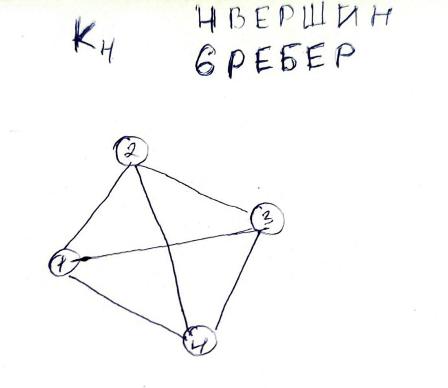 K₄
4 ВЕРШИН
6 РЕБЕР
2
3
1
4